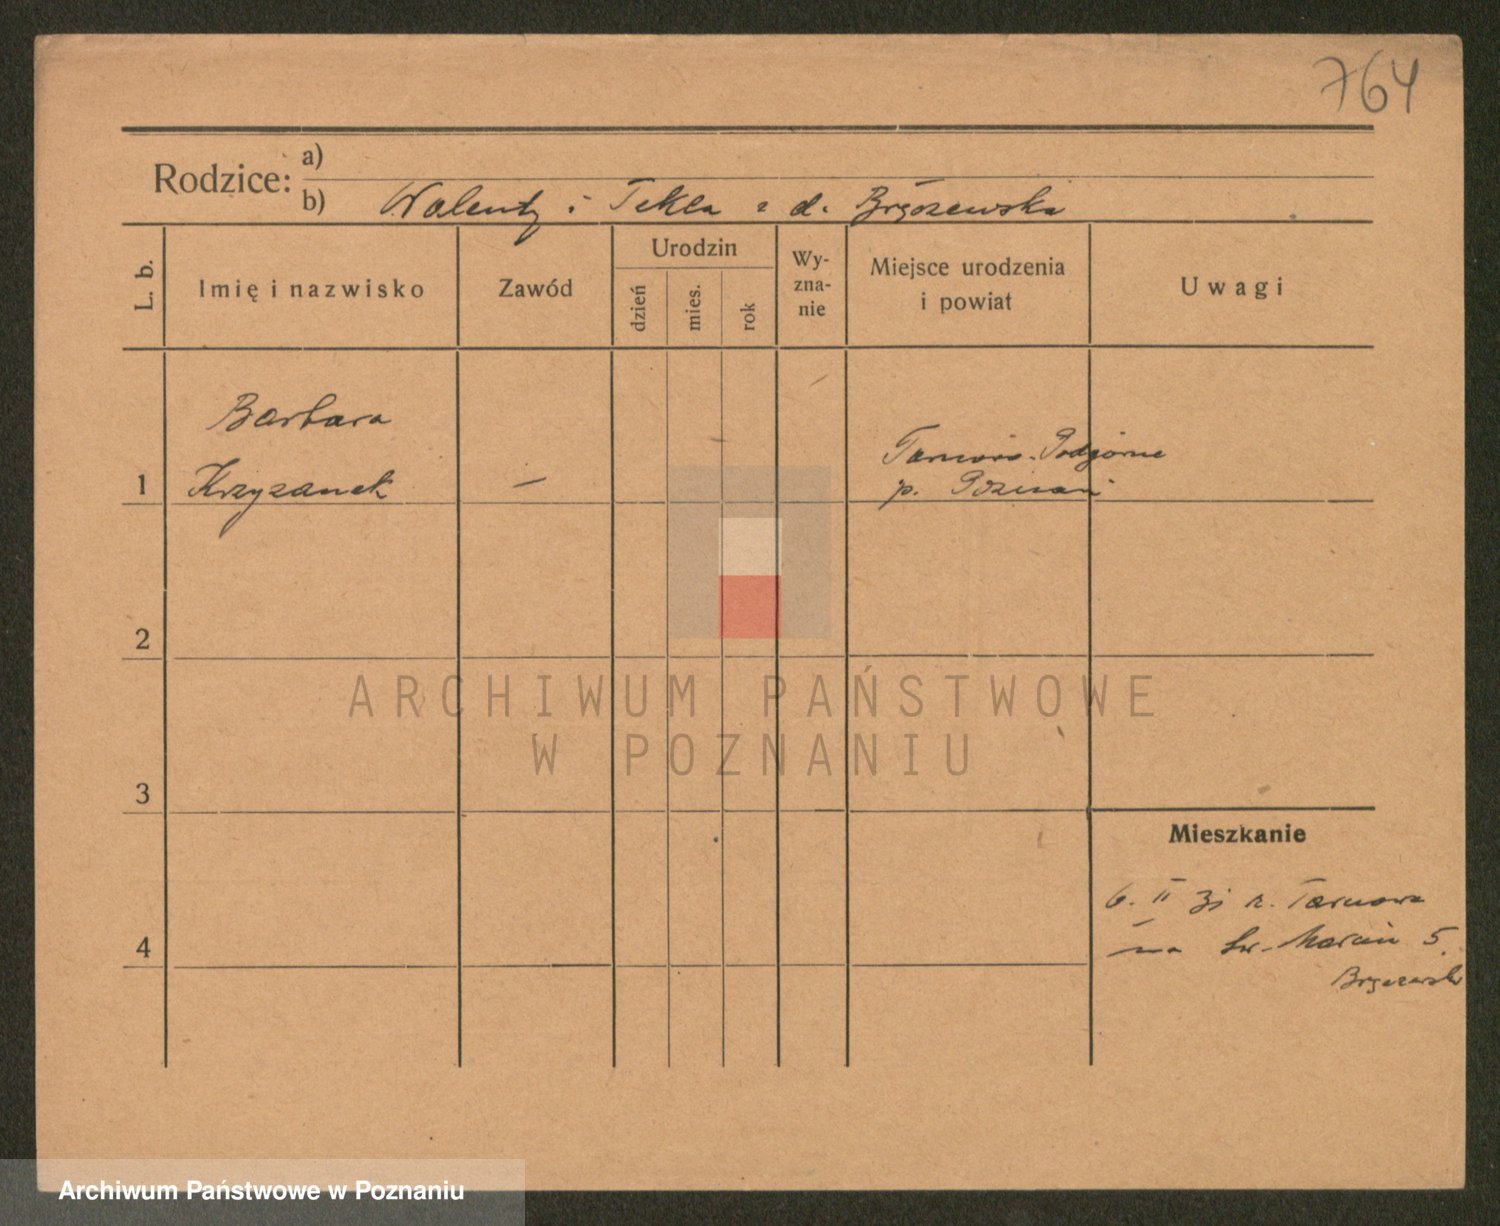 764
Rodzice: a)
b) Walenty i Tekla z d.
L. b.
Imię i nazwisko
Zawód
Urodzin
dzień
mies.
rok
Wy-
zna-
nie
Miejsce urodzenia
i powiat
Uwagi
Barbara
1 Krzyzanek —
Tarnowo-Podgórne
p. Poznań
2
3
4
Mieszkanie
6. II 31 z. Tarnowa
na Św. Marcin 5.
ARCHIWUM PAŃSTWOWE
W POZNANIU
Archiwum Państwowe w Poznaniu